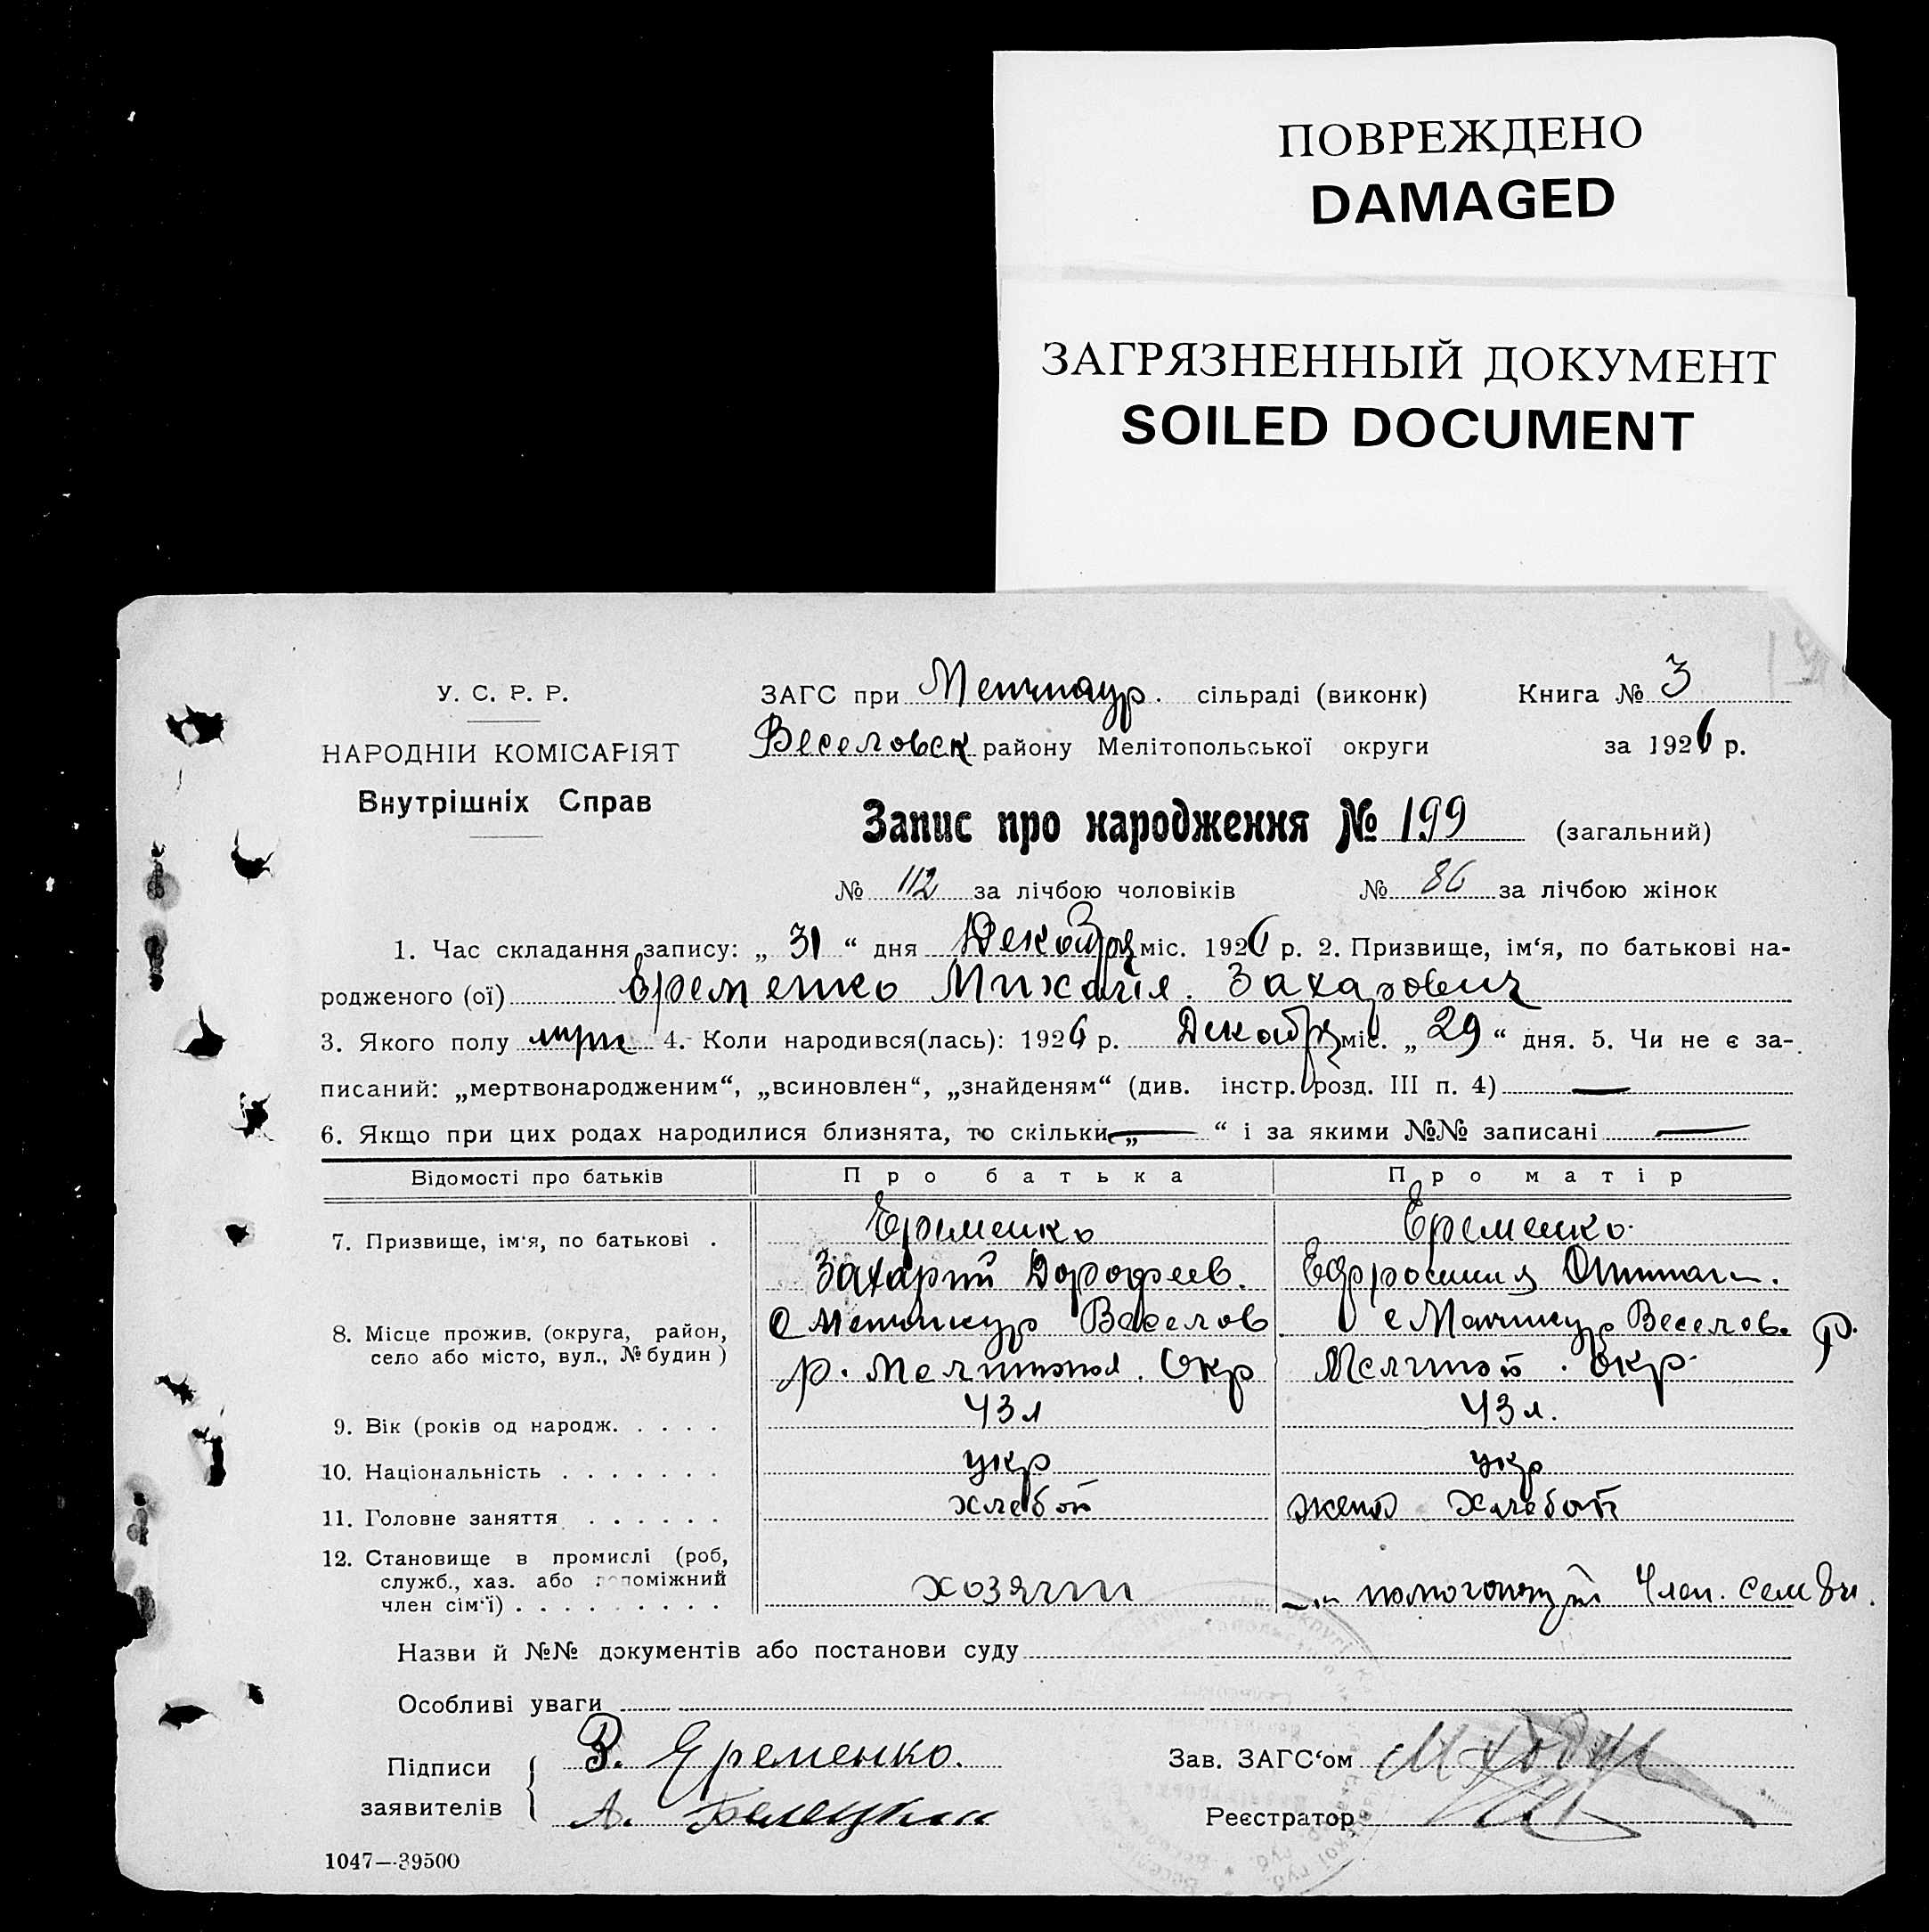 ПОВРЕЖДЕНО
DAMAGED
ЗАГРЯЗНЕННЫЙ ДОКУМЕНТ
SOILED DOCUMENT
У. С. Р. Р.
ЗАГС при Менчикур. сільраді (виконк) Книга № 3
НАРОДНІЙ КОМІСАРІЯТ
Веселовск району Мелітопольської округи за 1926 р.
Внутрішніх Справ
Запис про народження № 199 (загальний)
№ 112 за лічбою чоловіків № 86 за лічбою жінок
1. Час складання запису: „ 31 “ дня Декабря міс. 1926 р. 2. Призвище, ім‘я, по батькові на-
родженого (ої) Еременко Михаил Захарович
3. Якого полу муж 4. Коли народився(лась): 1926 р. Декабря міс. „ 29 “ дня. 5. Чи не є за-
писаний: „мертвонародженим“, „всиновлен“, „знайденям“ (див. інстр. розд. III п. 4) —
6. Якщо при цих родах народилися близнята, то скільки „ — “ і за якими №№ записані —
Відомості про батьків Про батька Про матір
7. Призвище, ім‘я, по батькові . Еременко Еременко
Захарий Дорофеев. Ефросиния
8. Місце прожив. (округа, район, с Менчикур Веселов с Менчикур Веселов. р.
село або місто, вул., № будин ) р. Мелитопол. Окр Мелитоп. Окр
9. Вік (років од народж. . . . . 43 л 43 л.
10. Національність . . . . . . . укр укр
11. Головне заняття . . . . . . хлебоп жена хлебоп
12. Становище в промислі (роб,
служб., хаз. або допоміжний
член сім‘ї) . . . . . . . . . хозяин помогающий Член. семьи.
Назви й №№ документів або постанови суду
Особливі уваги
Підписи З. Еременко. Зав. ЗАГС‘ом
заявителів А. Белецкий Реєстратор
1047—39500